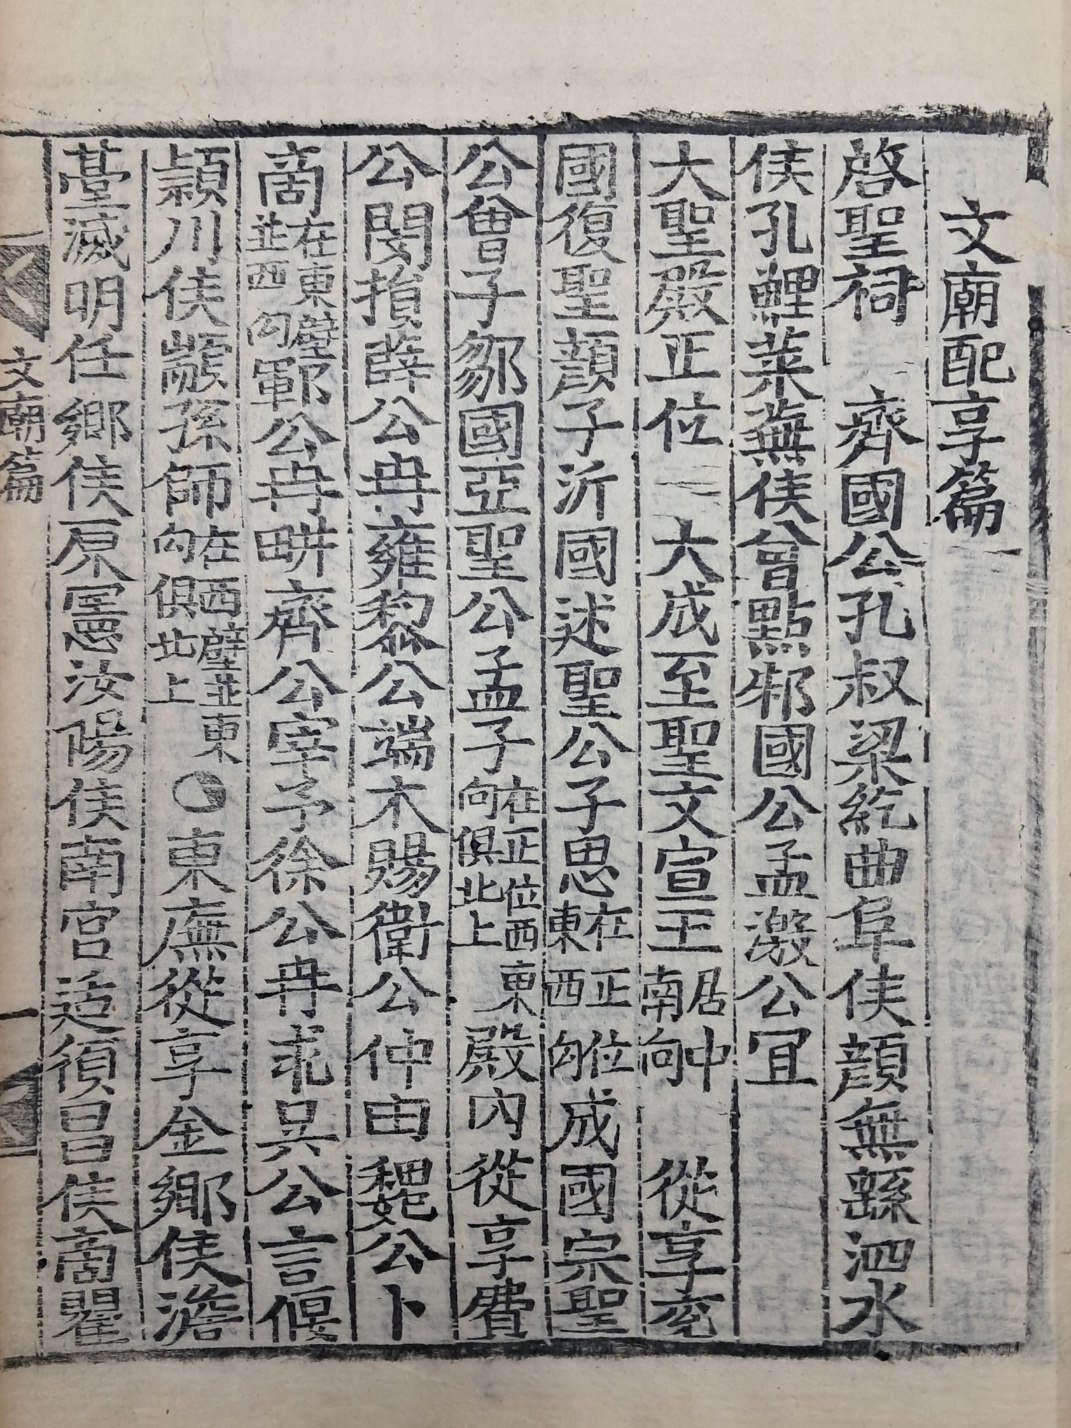 文廟配享篇
啓聖祠　齊國公孔叔梁紇曲阜侯顔無繇泗水
侯孔鯉萊蕪侯曾點邾國公孟激公冝
大聖殿正位　大成至聖文宣王居中南向　從享兗
國復聖顔子沂國述聖公子思在正位東西向郕國宗聖
公曾子鄒國亞聖公孟子在正位西東向俱北上殿內從享費
公閔損薛公冉雍黎公端木賜衛公仲由魏公卜
商在東壁並西向鄆公冉畊齊公宰予徐公冉求吳公言偃
潁川侯顓孫師在西壁並東向俱北上●東廡從享金鄉侯澹
臺滅明任鄉侯原憲汝陽侯南宮适須昌侯商瞿
文廟篇　一